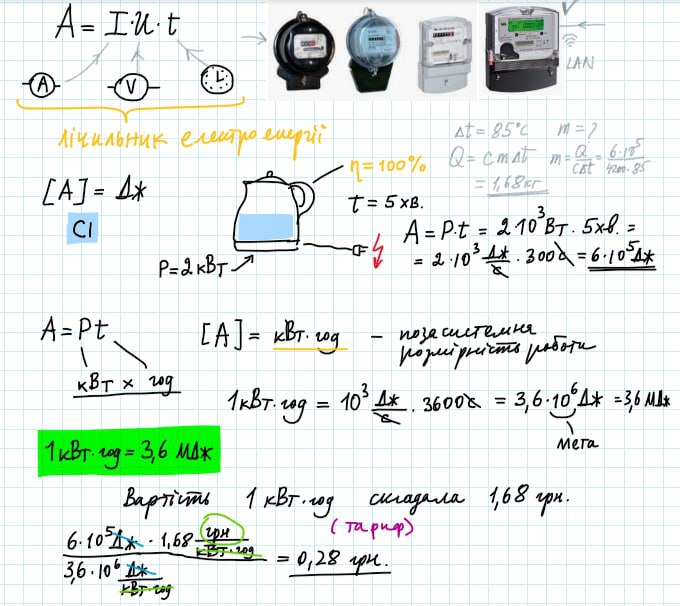 A = I·U·t
A
V
LAN
лічильник електроенергії
Δt = 85°C m = ?
Q = cmΔt m = Q/cΔt = 6·10⁵/4200·85
= 1,68 кг
[A] = Дж
СІ
η = 100%
t = 5 хв.
P = 2 кВт
A = P·t = 2·10³ Вт · 5 хв. =
= 2·10³ Дж/с · 300 с = 6·10⁵ Дж
A = Pt
кВт × год
[A] = кВт·год – позасистемна
розмірність роботи
1 кВт·год = 10³ Дж/с · 3600 с = 3,6·10⁶ Дж = 3,6 МДж
Мега
1 кВт·год = 3,6 МДж
Вартість 1 кВт·год складала 1,68 грн.
(тариф)
6·10⁵ Дж · 1,68 грн/кВт·год
3,6·10⁶ Дж/кВт·год
= 0,28 грн.